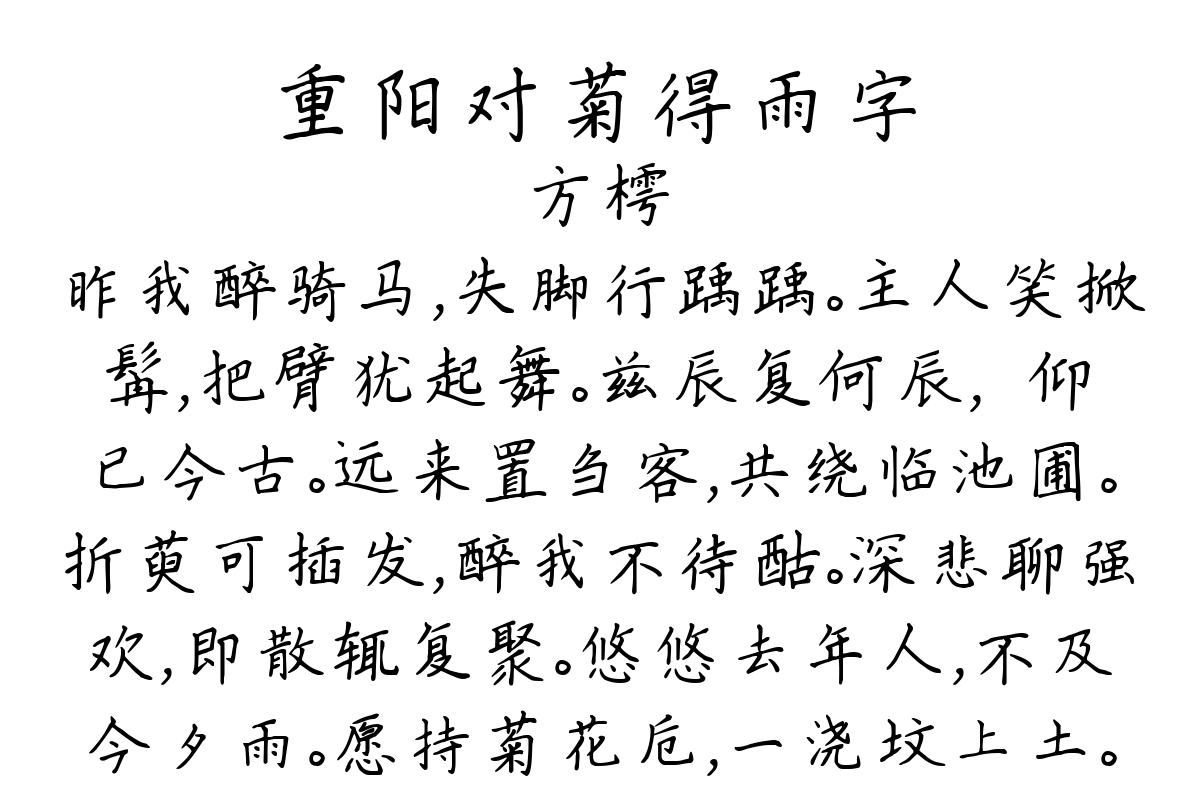 重阳对菊得雨字
方樗
昨我醉骑马,失脚行踽踽。主人笑掀
髯,把臂犹起舞。兹辰复何辰, 仰
已今古。远来置刍客,共绕临池圃。
折萸可插发,醉我不待酤。深悲聊强
欢,即散辄复聚。悠悠去年人,不及
今夕雨。愿持菊花卮,一浇坟上土。